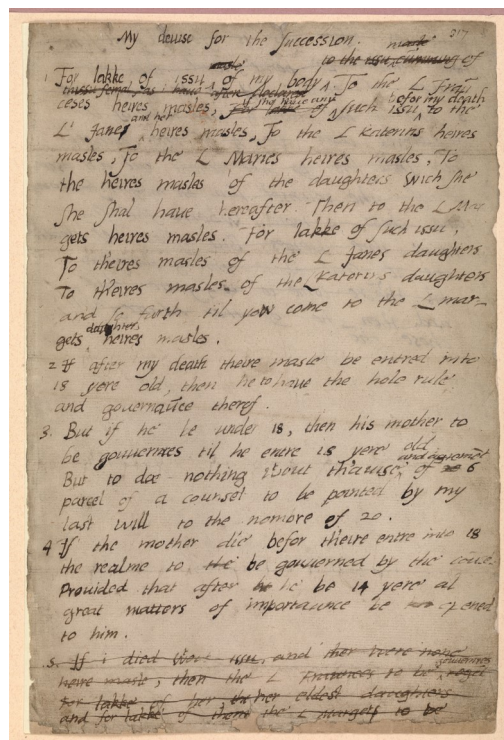 My deuise for the succession. 317
1 For lakke of issu of my body To the L Fraun
ceses heires masles, if she have any such issu befor my death to the
L' Janes and her heires masles, To the L Katerins heires
masles, To the L Maries heires masles, To
the heires masles of the daughters wich she
she shal have hereafter. Then to the L Mar
gets heires masles. For lakke of such issu,
To theires masles of the L Janes daughters
To theires masles of the L Katerins daughters
and so forth til yow come to the L mar
gets daughters heires masles.
2 If after my death theire masle be entred into
18 yere old, then he to have the hole rule
and gouernauce therof.
3. But if he be under 18, then his mother to
be gouuernres til he entre 18 yere old
But to doe nothing wout thauise and agreement of 6
parcel of a counsel to be pointed by my
last will to the nomore of 20.
4 If the mother die befor theire entre into 18
the realme to be gouuerned by the couns
Prouided that after he be 14 yere al
great matters of importaunce be opened
to him.
5. If i died wout issu, and ther were none
heire masle, then the L Fraunces to be gouuernres
For lakke of her her eldest daughters
and for lakke of them the L Margets to be